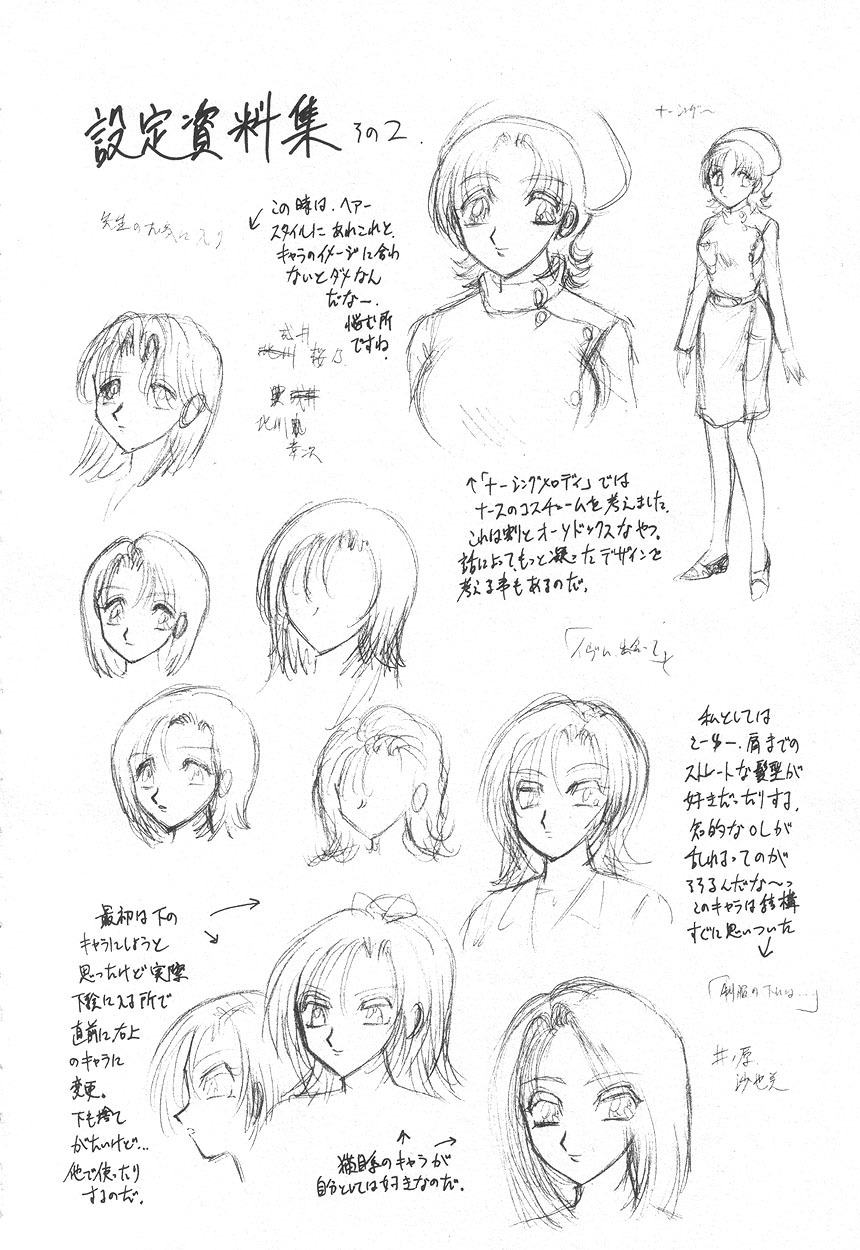 設定資料集 その2.
ナーシング〜
先生のお気に入り
この時は、ヘアー
スタイルにあれこれと、
キャラのイメージに合わ
ないとダメなん
だなー。
悩む所
ですね。
北川
幸次
↑「ナーシングメロディ」では
ナースのコスチュームを考えました。
これは割とオーソドックスなやつ。
話によってもっと凝ったデザインで
考える事もあるのだ。
私としては
肩までの
ストレートな髪型が
好きだったりする。
知的なOLが
乱れまってのが
そそるんだな〜っ
このキャラは結構
すぐに思いついた
「制服の下には…」
井ノ原
沙也
最初は下の
キャラにしようと
思ったけど実際
下絵に入る所で
直前に右上
のキャラに
変更。
下も捨て
がたいけど…
他で使ったり
するのだ。
猫目系のキャラが
自分としては好きなのだ。